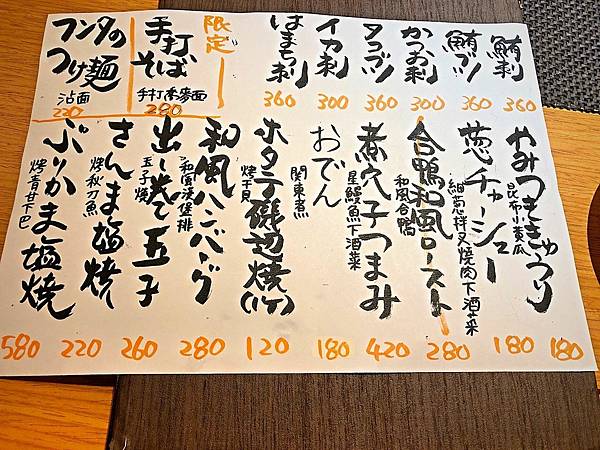 鮪刺
360
鮪ブツ
360
かつお刺
300
タコブツ
360
イカ刺
300
はまち刺
360
限定
手打
そば
手打蕎麥麵
280
フンタの
つけ麺
沾面
220
やみつききゅうり
昆布小黄瓜
180
葱チャーシュー
細蔥拌叉燒肉下酒菜
180
合鴨和風ロースト
和風合鴨
280
煮穴子つまみ
星鰻魚下酒菜
420
おでん
関東煮
180
ホタテ磯辺焼(1ケ)
燒干貝
120
和風ハンバーグ
和風漢堡排
280
出し巻き玉子
玉子燒
260
さんま塩焼
烤秋刀魚
220
ぶりかま塩焼
烤青甘下巴
580